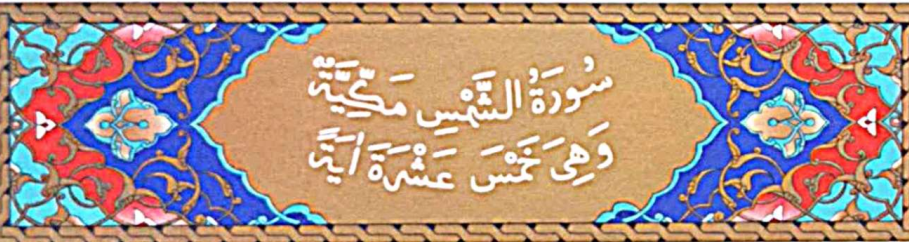 سُورَةُ الشَّمْسِ مَكِّيَّةٌ
وَهِىَ خَمْسَ عَشْرَةَ اٰيَةً